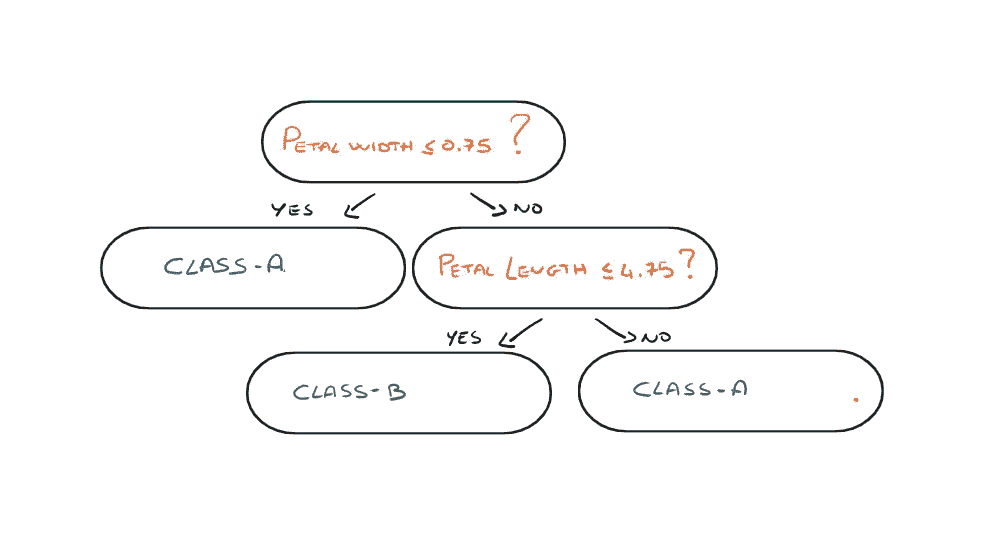 PETAL WIDTH ≤ 0.75 ?
YES
NO
CLASS-A
PETAL LENGTH ≤ 4.75?
YES
NO
CLASS-B
CLASS-A